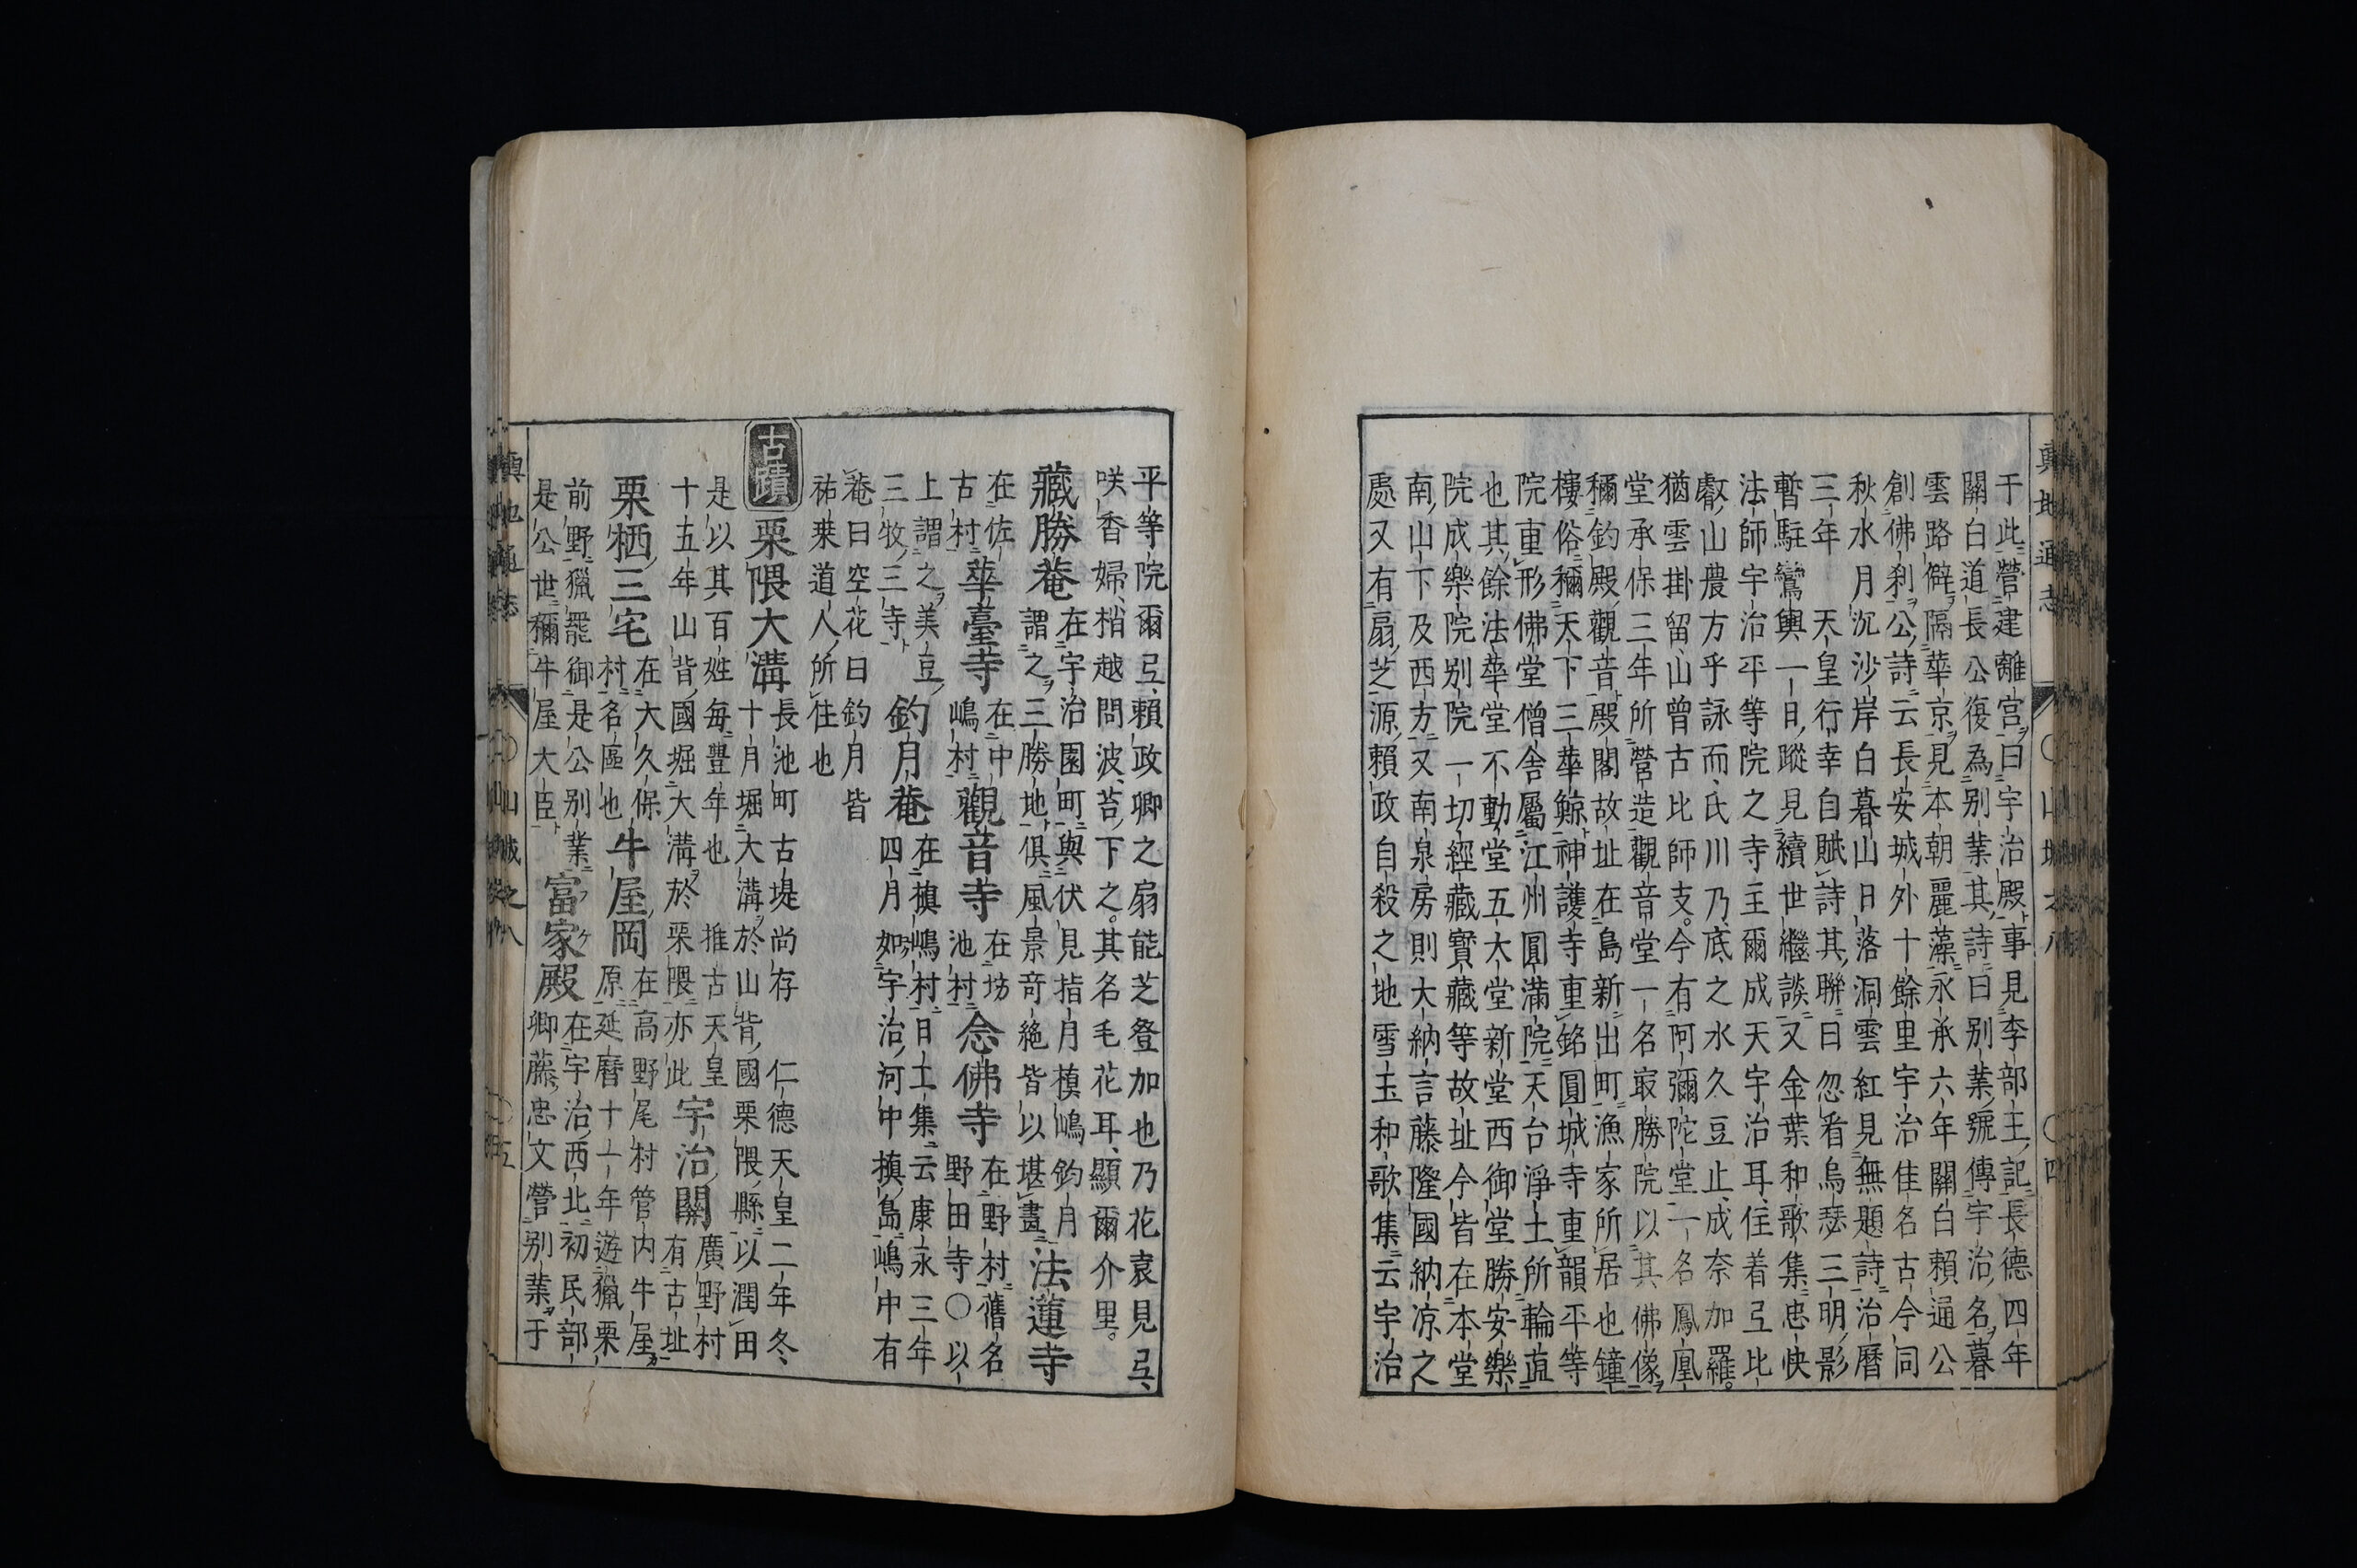 輿地通志 〇山城之八 〇四
于此營建離宮曰宇治殿事見李部王記長德四年
關白道長公復為別業其詩曰別業號傳宇治名暮
雲路僻隔華京見本朝麗藻永承六年關白賴通公
創佛刹公詩云長安城外十餘里宇治佳名古今同
秋水月沉沙岸白暮山日落洞雲紅見無題詩治曆
三年 天皇行幸自賦詩其聯曰忽看烏瑟三明影
暫駐鸞輿一日蹤見續世繼談又金葉和歌集忠快
法師宇治平等院之寺主爾成天宇治耳住着弖比
叡山農方乎詠而氏川乃底之水久豆止成奈加羅。
猶雲掛留山曾古比師支。今有阿彌陀堂一名鳳凰
堂承保三年所營造觀音堂一名㝡勝院以其佛像
稱釣殿觀音殿閣故址在島新出町漁家所居也鐘
樓俗稱天下三華鯨神護寺重銘圓城寺重韻平等
院重形佛堂僧舎屬江州圓滿院天台淨土所輪葢
也其餘法華堂不動堂五大堂新堂西御堂勝安樂
院成樂院別院一切經藏寳藏等故址今皆在本堂
南山下及西方又南泉房則大納言藤隆國納凉之
處又有扇芝源賴政自殺之地雪玉和歌集云宇治
平等院爾弖賴政卿之扇能芝登加也乃花袁見弖
咲香婦梢越問波苔下之。其名毛花耳顯爾介里。
藏勝菴 在宇治園町與伏見指月槇嶋釣月
謂之三勝地俱風景竒絶皆以堪畫 法蓮寺
在佐
古村 華臺寺 在中
嶋村 觀音寺 在坊
池村 念佛寺 在野村舊名
野田寺〇以
上謂之美豆
三牧三寺 釣月菴 在槙嶋村日土集云康永三年
四月如宇治河中槙島嶋中有
菴曰空花曰釣月皆
祐乗道人所住也
古蹟 栗隈大溝 長池町古堤尚存 仁德天皇二年冬
十月堀大溝於山背國栗隈縣以潤田
是以其百姓每豐年也 推古天皇
十五年山背國堀大溝於栗隈亦此 宇治關 廣野村
有古址
栗栖三宅 在大久保
村名區也 牛屋岡 在高野尾村管内牛屋
原延曆十一年遊獵栗
前野獵罷御是公別業
是公世稱牛屋大臣 富家殿 在宇治西北初民部
卿藤忠文營別業于
輿地通志 〇山城之八 〇五